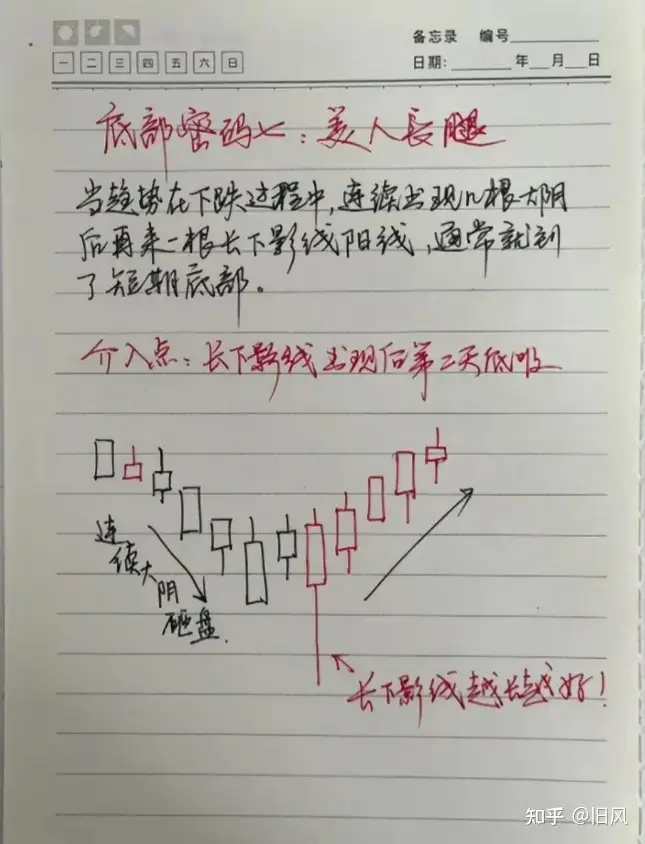 备忘录 编号
一 二 三 四 五 六 日
日期: 年 月 日
底部密码七：美人長腿
当趋势在下跌过程中，连续出现几根大阴
后再来一根长下影线阳线，通常就到
了短期底部。
介入点：长下影线出现后第二天低吸
连
续大
阴
砸盘.
长下影线越长越好！
知乎 @旧风